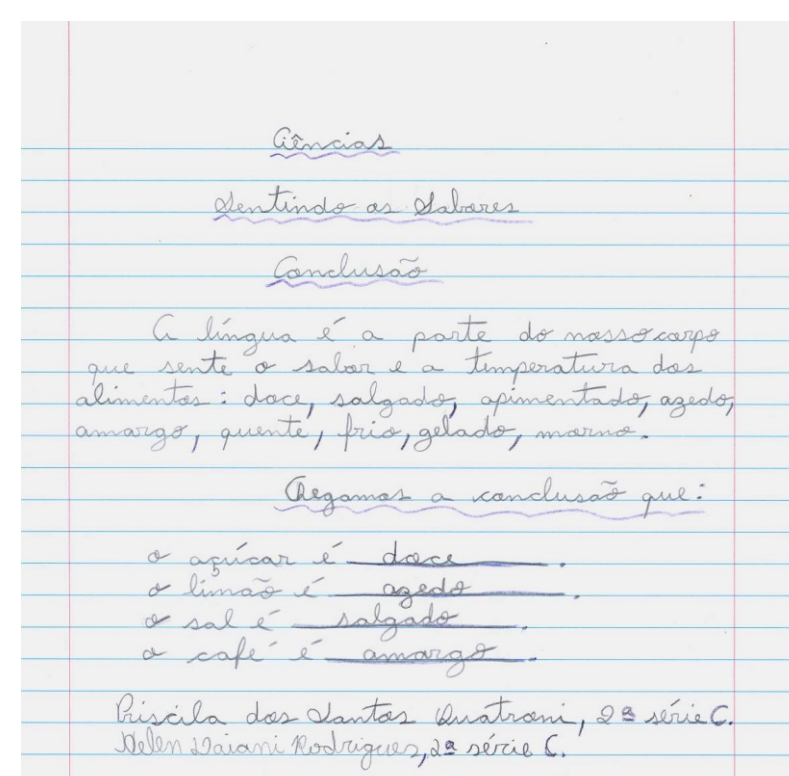 Ciências
Sentindo os Sabores
Conclusão
A língua é a parte do nosso corpo
que sente o sabor e a temperatura dos
alimentos: doce, salgado, apimentado, azedo,
amargo, quente, frio, gelado, morno.
Chegamos a conclusão que:
o açúcar é doce.
o limão é azedo.
o sal é salgado.
o café é amargo.
Priscila dos Santos Quatroni, 2ª série C.
Helen Daiani Rodrigues, 2ª série C.